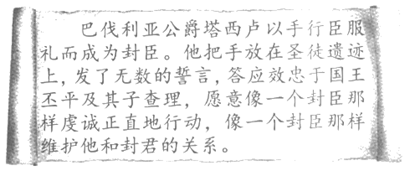 巴伐利亚公爵塔西卢以手行臣服
礼而成为封臣。他把手放在圣徒遗迹
上，发了无数的誓言，答应效忠于国王
丕平及其子查理，愿意像一个封臣那
样虔诚正直地行动，像一个封臣那样
维护他和封君的关系。